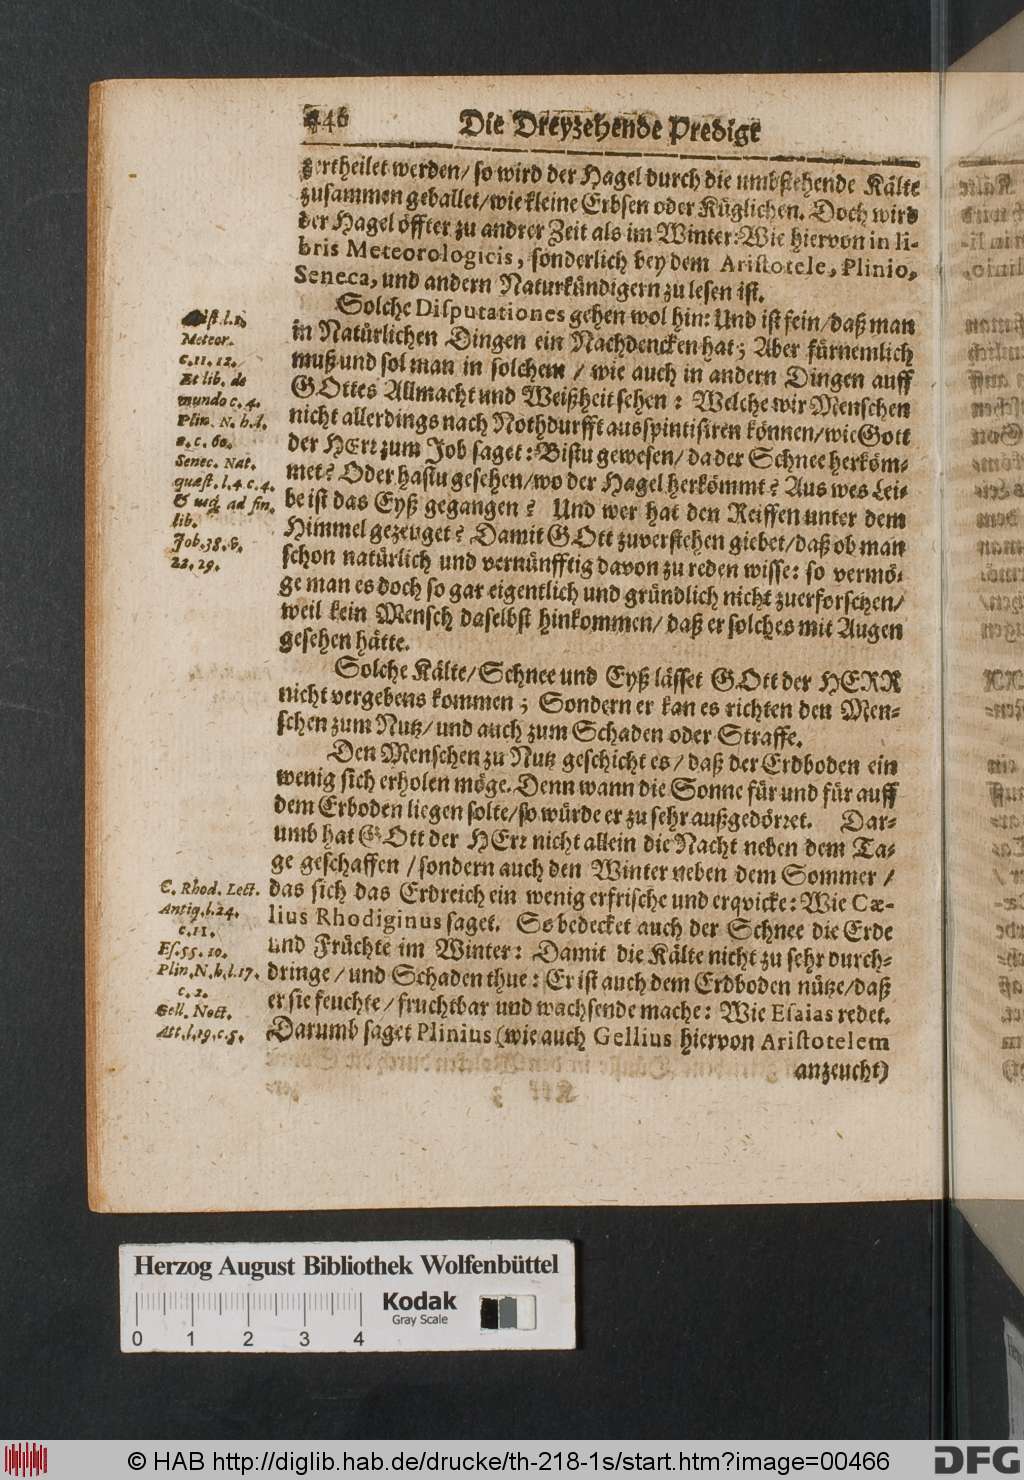 446 Die Dreyzehende Predigt
zertheilet werden/ so wird der Hagel durch die umbstehende Kälte
zusammen geballet/wie kleine Erbsen oder Küglichen. Doch wird
der Hagel öffter zu andrer Zeit als im Winter: Wie hiervon in li-
bris Meteorologicis, sonderlich bey dem Aristotele, Plinio,
Seneca, und andern Naturkündigern zu lesen ist.
Solche Disputationes gehen wol hin: Und ist fein/daß man
in Natürlichen Dingen ein Nachdencken hat; Aber fürnemlich
muß und sol man in solchem / wie auch in andern Dingen auff
GOttes Allmacht und Weißheit sehen: Welche wir Menschen
nicht allerdings nach Nothdurfft ausspintisiren können/wie Gott
der HErr zum Job saget: Bistu gewesen/da der Schnee herköm-
met? Oder hastu gesehen/wo der Hagel herkömmt? Aus wes Lei-
be ist das Eyß gegangen? Und wer hat den Reiffen unter dem
Himmel gezeuget? Damit GOtt zuverstehen giebet/daß ob man
schon natürlich und vernünfftig davon zu reden wisse: so vermö-
ge man es doch so gar eigentlich und gründlich nicht zuerforschen/
weil kein Mensch daselbst hinkommen/ daß er solches mit Augen
gesehen hätte.
Arist. l. 1.
Meteor.
c. 11. 12.
Et lib. de
mundo c. 4.
Plin. N. h. l.
2. c. 60.
Senec. Nat.
quæst. l. 4 c. 4.
& usq; ad fin.
lib.
Job. 38. v.
22. 29.
Solche Kälte/ Schnee und Eyß lässet GOtt der HERR
nicht vergebens kommen; Sondern er kan es richten den Men-
schen zum Nutz/ und auch zum Schaden oder Straffe.
Den Menschen zu Nutz geschicht es/ daß der Erdboden ein
wenig sich erholen möge. Denn wann die Sonne für und für auff
dem Erboden liegen solte/so würde er zu sehr außgedörret. Dar-
umb hat GOtt der HErr nicht allein die Nacht neben dem Ta-
ge geschaffen /sondern auch den Winter neben dem Sommer /
das sich das Erdreich ein wenig erfrische und erqvicke: Wie Cæ-
lius Rhodiginus saget. So bedecket auch der Schnee die Erde
und Früchte im Winter: Damit die Kälte nicht zu sehr durch-
dringe/ und Schaden thue: Er ist auch dem Erdboden nütze/daß
er sie feuchte/ fruchtbar und wachsende mache: Wie Esaias redet.
Darumb saget Plinius (wie auch Gellius hiervon Aristotelem
anzeucht)
C. Rhod. Lect.
Antiq. l. 24.
c. 11.
Es. 55. 10.
Plin. N. h. l. 17.
c. 2.
Gell. Noct.
Att. l. 19. c. 5.
Herzog August Bibliothek Wolfenbüttel
Kodak
Gray Scale
0 1 2 3 4
© HAB http://diglib.hab.de/drucke/th-218-1s/start.htm?image=00466
DFG